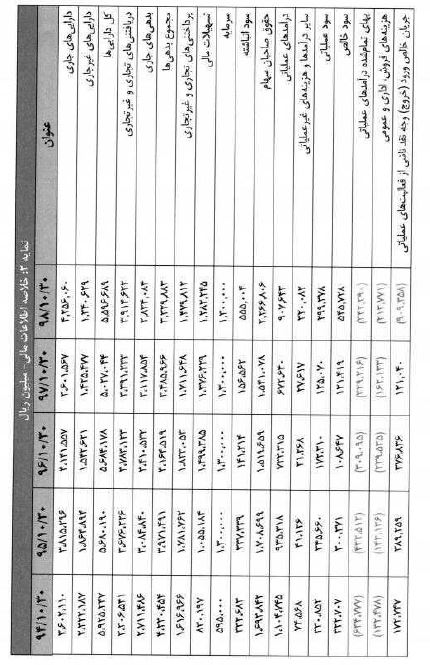 نمایه ۲: خلاصه اطلاعات مالی - میلیون ریال
عنوان ۹۸/۱۰/۳۰ ۹۷/۱۰/۳۰ ۹۶/۱۰/۳۰ ۹۵/۱۰/۳۰ ۹۴/۱۰/۳۰
دارایی‌های جاری ۴,۲۵۶,۰۶۰ ۳,۶۰۱,۵۶۷ ۴,۱۴۱,۵۵۷ ۳,۸۱۵,۲۹۶ ۳,۶۰۲,۱۱۰
دارایی‌های غیرجاری ۱,۳۴۰,۶۲۹ ۱,۴۲۵,۴۷۷ ۱,۵۴۲,۶۲۱ ۱,۸۶۴,۸۹۴ ۲,۳۲۲,۱۸۷
کل دارایی‌ها ۵,۵۹۶,۶۸۹ ۵,۰۲۷,۰۴۴ ۵,۶۸۴,۱۷۸ ۵,۶۸۰,۱۹۰ ۵,۹۲۴,۲۹۷
دریافتنی‌های تجاری و غیرتجاری ۳,۹۱۳,۶۲۲ ۳,۳۹۱,۲۲۳ ۳,۷۸۳,۱۲۳ ۳,۶۷۶,۲۲۶ ۳,۳۰۶,۵۳۱
بدهی‌های جاری ۲,۸۳۳,۰۸۳ ۳,۱۱۷,۸۵۴ ۳,۴۱۰,۵۳۲ ۳,۰۸۴,۸۴۰ ۲,۷۱۱,۴۸۶
مجموع بدهی‌ها ۳,۳۲۹,۸۸۳ ۳,۴۸۵,۹۶۶ ۴,۱۶۴,۵۱۹ ۳,۹۷۱,۴۹۱ ۴,۲۳۰,۴۵۴
پرداختنی‌های تجاری و غیرتجاری ۱,۴۷۹,۸۱۲ ۱,۷۱۱,۶۴۸ ۱,۸۲۳,۰۵۳ ۱,۷۸۱,۷۶۲ ۱,۶۱۶,۹۶۶
تسهیلات مالی ۱,۲۸۲,۲۴۵ ۱,۳۷۶,۲۲۹ ۱,۴۹۹,۳۸۵ ۱,۰۵۵,۱۸۴ ۸۲۰,۱۹۷
سرمایه ۱,۳۰۰,۰۰۰ ۱,۳۰۰,۰۰۰ ۱,۳۰۰,۰۰۰ ۱,۳۰۰,۰۰۰ ۵۹۵,۰۰۰
سود انباشته ۵۵۵,۰۰۴ ۱۵۶,۵۶۲ ۱۴۱,۲۱۴ ۳۳۷,۳۳۹ ۳۳۲,۶۸۳
حقوق صاحبان سهام ۲,۲۶۶,۸۰۶ ۱,۵۴۱,۰۷۸ ۱,۵۱۹,۶۵۹ ۱,۷۰۸,۶۹۹ ۱,۶۹۳,۸۴۳
درآمدهای عملیاتی ۹۰۷,۶۴۳ ۶۷۲,۶۳۰ ۷۲۲,۳۱۵ ۹۳۵,۳۱۸ ۱,۱۰۴,۷۴۵
سایر درآمدها و هزینه‌های غیرعملیاتی ۲۴۰,۰۸۲ ۲۷,۶۱۷ ۲۱,۲۶۸ ۴۱,۱۲۶ ۷۴,۵۶۸
سود عملیاتی ۲۹۹,۳۷۸ ۱۲۵,۰۷۰ ۱۷۳,۳۱۰ ۲۴۵,۶۶۰ ۳۳۰,۸۵۲
سود خالص ۵۴۵,۷۲۸ ۱۲۱,۴۱۹ ۱۰۸,۶۴۷ ۲۰۰,۳۷۱ ۳۲۲,۷۰۷
بهای تمام‌شده درآمدهای عملیاتی (۳۳۹,۲۱۶) (۳۰۹,۰۹۵) (۴۳۲,۵۱۳) (۶۳۴,۷۹۷)
هزینه‌های فروش، اداری و عمومی (۲۱۳,۷۷۱) (۱۶۲,۱۳۳) (۲۳۹,۵۳۵) (۱۴۳,۱۲۶) (۱۳۲,۴۷۸)
جریان خالص ورود (خروج) وجه نقد ناشی از فعالیت‌های عملیاتی (۹۰۹,۳۵۸) ۱۲۱,۰۴۰ ۳۷۶,۸۳۶ ۲۸۹,۲۵۹ ۱۷۲,۷۳۷